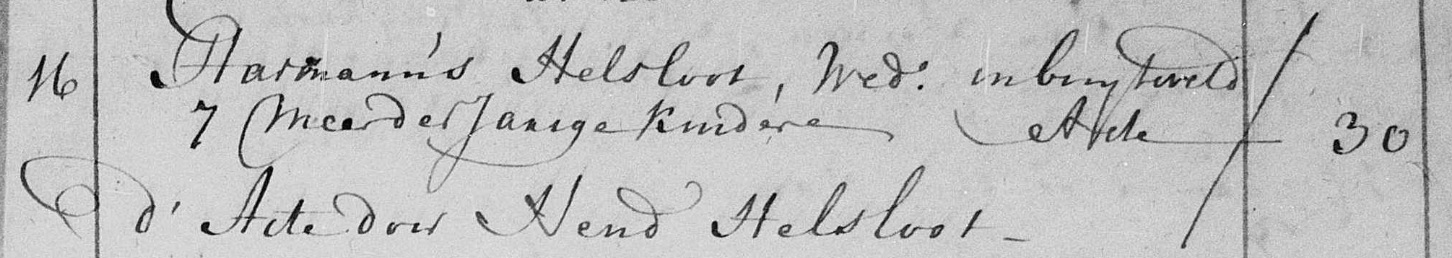 16 Harmanus Helsloot, Wed: in buyteveld
7 Meerder Jarige Kindere Acte 30
d' Acte door Hend Helsloot